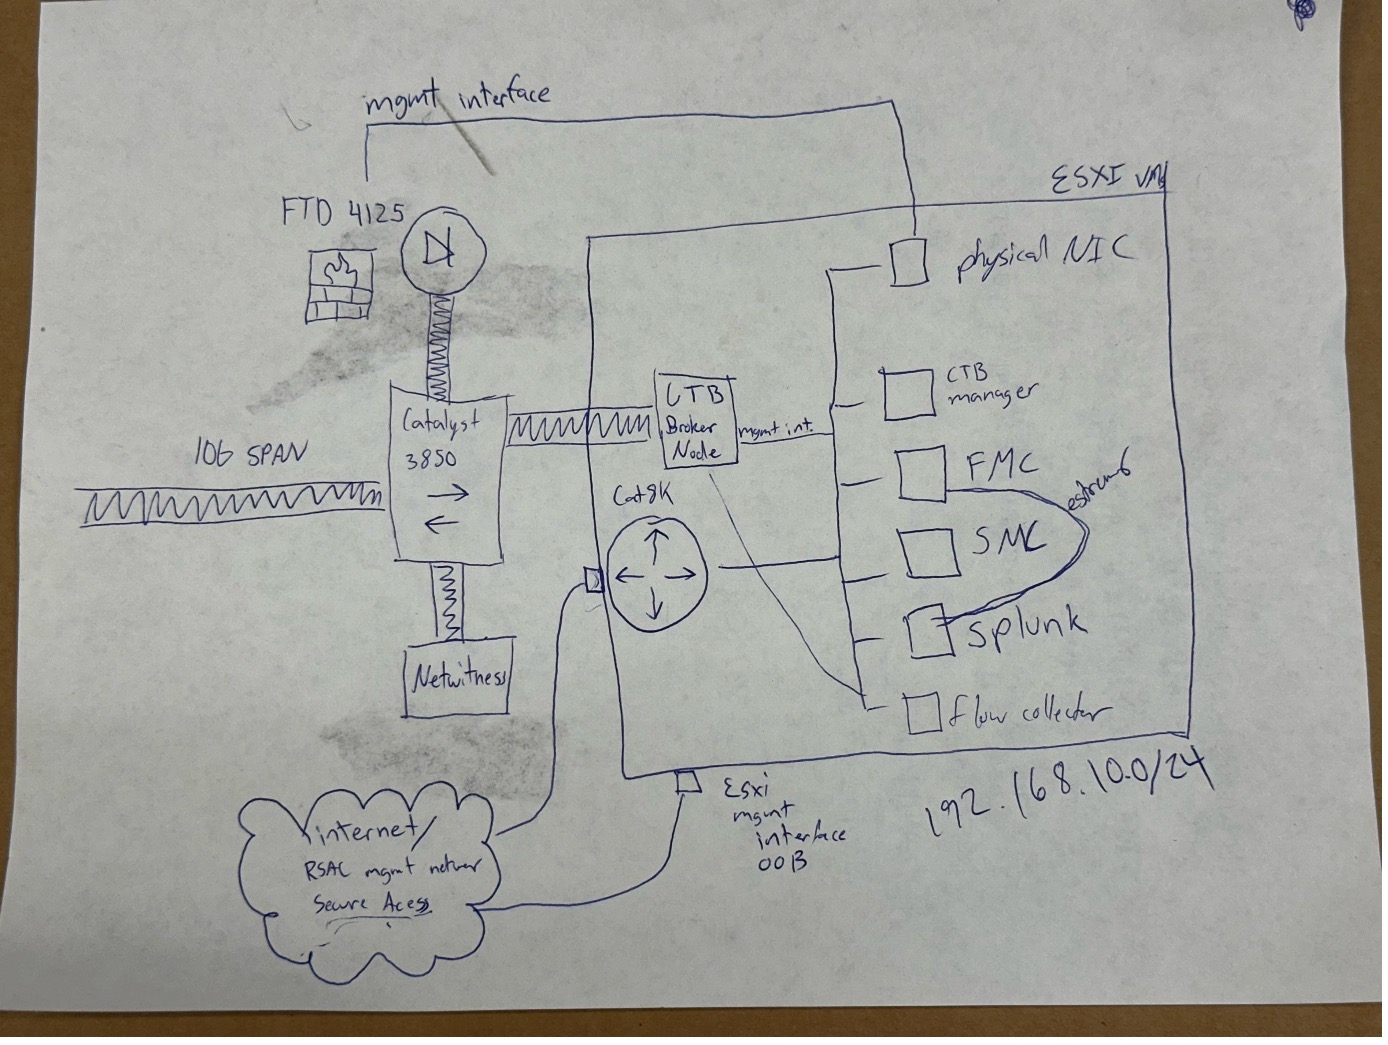 mgmt interface
ESXI VMs
FTD 4125
physical NIC
CTB
manager
CTB
Broker
Node
mgmt int.
Catalyst
3850
10G SPAN
FMC
estream
Cat8K
SMC
Splunk
Netwitness
flow collector
ESXi
mgmt
interface
OOB
192.168.10.0/24
internet/
RSAC mgmt networ
Secure Acess